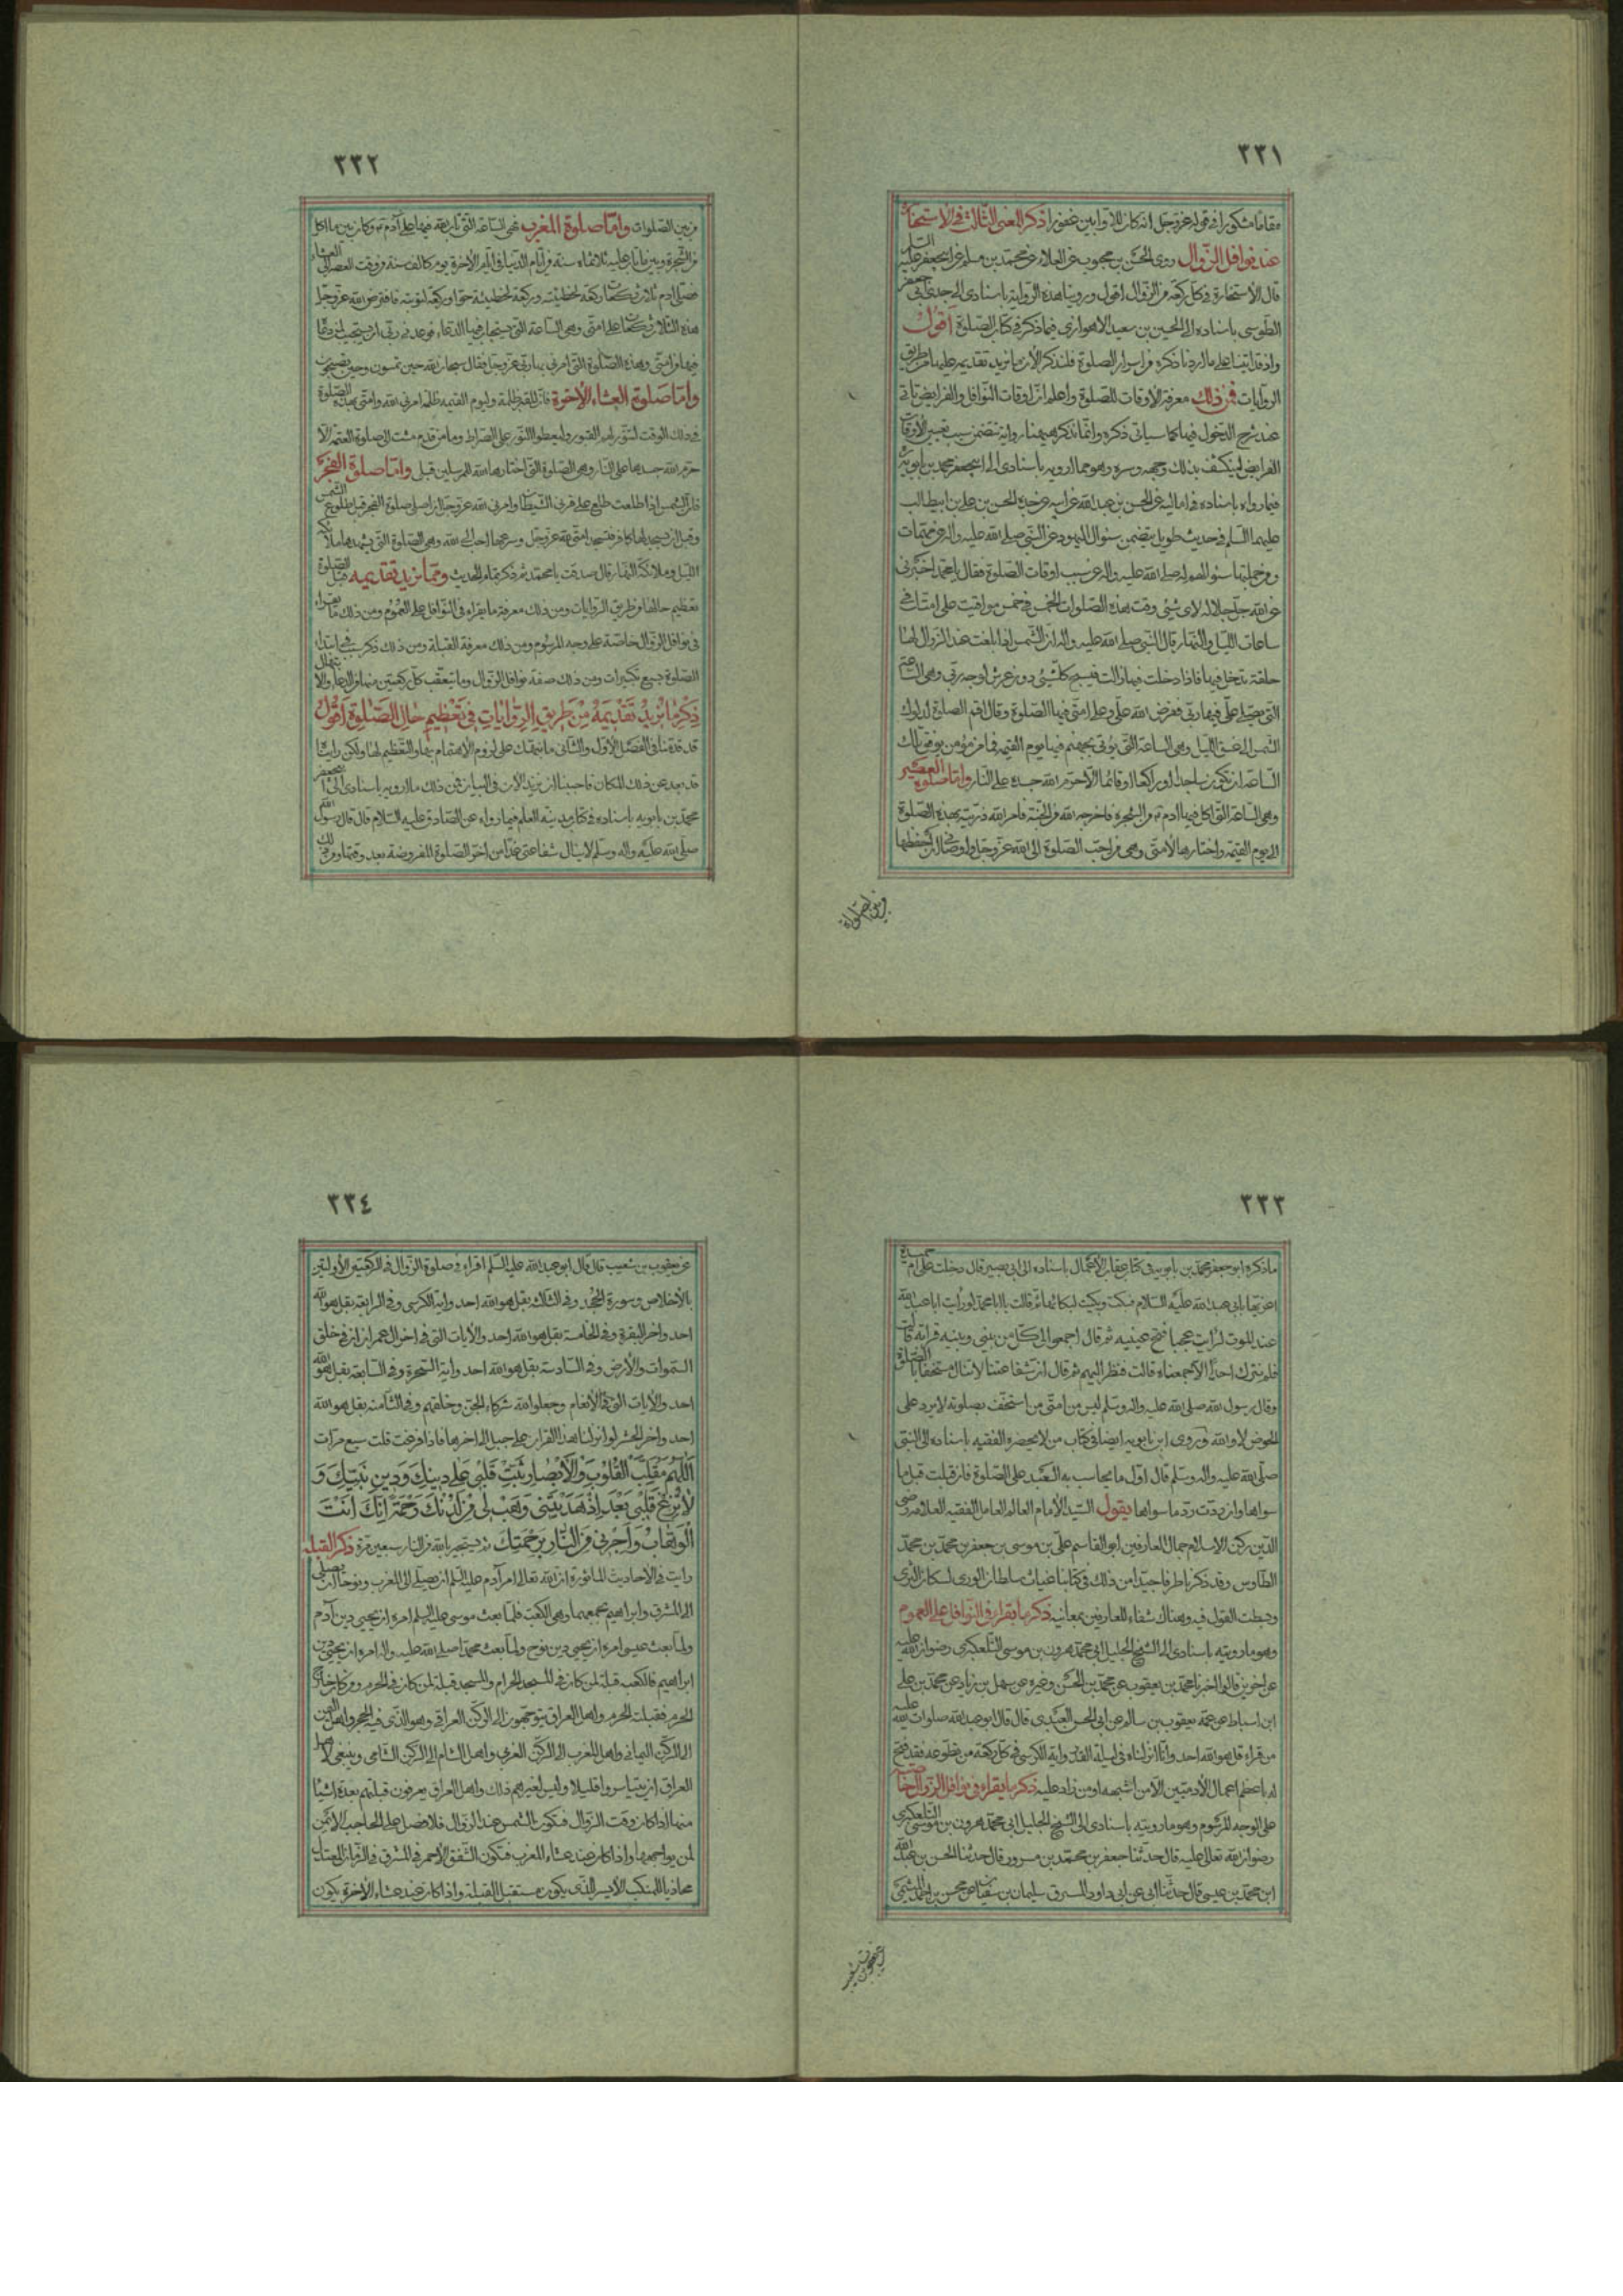 ٣٣١
مقاما مشكورا في قوله عز وجل انه كان للاوابين غفورا ذكر المعنى الثالث في الاستخارة
عند نوافل الزوال روى الحسن بن محبوب عن العلاء عن محمد بن مسلم عن ابي جعفر عليه السلم
قال الاستخارة في كل ركعة من الزوال اقول وروينا هذه الرواية باسنادى الى جدى ابي جعفر
الطوسي باسناده الى الحسين بن سعيد الاهوازي فيما ذكره في كتاب الصلوة اقول
واذ قد اتينا على ما اردنا ذكره من اسرار الصلوة فلنذكر الان ما نريد تقديمه عليها من طريق
الروايات فمن ذلك معرفة الاوقات للصلوة واعلم ان اوقات النوافل والفرايض تاتي
عند شرح الدخول فيها كما سياتي ذكره وانما نذكر ههنا رواية تتضمن سبب تعيين الاوقات
الفرايض لينكشف بذلك وجهه وسره وهو مما ارويه باسنادى الى ابي جعفر محمد بن بابويه
فيما رواه باسناده في اماليه عن الحسن بن عبد الله عن ابيه عن جده الحسن بن علي بن ابيطالب
عليهما السلم في حديث طويل يتضمن سئوال اليهود عن النبي صلى الله عليه واله عن مهمات
ومن جملتها سئوالهم له صلى الله عليه واله عن سبب اوقات الصلوة فقال يا محمد اخبرني
عن الله جل جلاله لاى شئ وقت هذه الصلوات الخمس في خمس مواقيت على امتك في
ساعات الليل والنهار قال النبي صلى الله عليه واله ان الشمس اذا بلغت عند الزوال لها
حلقة تدخل فيها فاذا دخلت فيها زالت فيسبح كل شئ دون عرش لوجه ربي وهى الساعة
التي يصلي علي فيها ربي ففرض الله علي وعلى امتي فيها الصلوة وقال اقم الصلوة لدلوك
الشمس الى غسق الليل وهى الساعة التي يؤتى بجهنم فيها يوم القيمة فما من مؤمن يوفق تلك
الساعة ان يكون ساجدا او راكعا او قائما الا حرم الله جسده على النار واما صلوة العصر
وهى الساعة التي اكل فيها ادم من الشجرة فاخرجه الله من الجنة فامر الله ذريته بهذه الصلوة
الى يوم القيمة واختارها لامتي وهى من احب الصلوة الى الله عز وجل واوصاني ان احفظها
من بين الصلوات
٣٣٢
من بين الصلوات واما صلوة المغرب فهى الساعة التي تاب الله فيها على آدم وكان بين ما اكل
من الشجرة وبين ما تاب عليه ثلاثماة سنة من ايام الدنيا في ايام الآخرة يوم كالف سنة من وقت العصر الى العشاء
فصلى ادم ثلاث ركعات ركعة لخطيئته وركعة لخطيئة حوا وركعة لتوبته فافترض الله عز وجل
هذه الثلاث ركعات على امتي وهى الساعة التي يستجاب فيها الدعاء فوعدني ربي ان يستجيب لمن دعا
فيها من امتي وهذه الصلوة التي امرني بها ربي عز وجل فقال سبحان الله حين تمسون وحين تصبحون
واما صلوة العشاء الاخرة فان للقبر ظلمة وليوم القيمة ظلمة امرني الله وامتي بهذه الصلوة
في ذلك الوقت لتنور لهم القبور وليعطوا النور على الصراط وما من قدم مشت الى صلوة العتمة الا
حرم الله جسدها على النار وهى الصلوة التي اختارها الله للمرسلين قبلي واما صلوة الفجر
فان الشمس اذا طلعت طلع على قرني الشيطان وامرني الله عز وجل ان اصلي صلوة الفجر قبل طلوع الشمس
وقبل ان يسجد لها كافر فتسجد امتي لله عز وجل وسرعتها احب الى الله وهى الصلوة التي يشهدها ملائكة
الليل وملائكة النهار قال صدقت يا محمد ثم ذكر تمام الحديث ومما نريد تقديمه قبل الصلوة
تعظيم حالها من طريق الروايات ومن ذلك معرفة ما يقراء في النوافل على العموم ومن ذلك ما يقراء
في نوافل الزوال خاصة على وجه المرسوم ومن ذلك معرفة القبلة ومن ذلك ذكر سبب في ابتداء
الصلوة بسبع تكبيرات ومن ذلك صفة نوافل الزوال وما يتعقب كل ركعتين منها من الدعاء والابتهال
ذكر ما نريد تقديمه من طريق الروايات في تعظيم حال الصلوة اقول
قد قدمنا في الفصل الاول والثاني ما ينبهك على لزوم الاهتمام بها والتعظيم لها ولكن رايتنا
قد بعد عن ذلك المكان فاحببنا ان نزيد الان في البيان فمن ذلك ما ارويه باسنادى الى ابي جعفر
محمد بن بابويه باسناده في كتاب مدينة العلم فيما رواه عن الصادق عليه السلام قال قال رسول الله
صلى الله عليه واله وسلم لا ينال شفاعتي غدا من اخر الصلوة المفروضة بعد وقتها ومن ذلك
٣٣٣
ما ذكره ابو جعفر محمد بن بابويه في كتاب عقاب الاعمال باسناده الى ابي بصير قال دخلت على ام حميدة
اعزيها بابي عبد الله عليه السلام فبكت وبكيت لبكائها ثم قالت يا ابا محمد لو رايت ابا عبد الله
عند الموت لرايت عجبا فتح عينيه ثم قال اجمعوا الى كل من بيني وبينه قرابة قالت
فلم نترك احدا الا جمعناه قالت فنظر اليهم ثم قال ان شفاعتنا لا تنال مستخفا بالصلوة
وقال رسول الله صلى الله عليه واله وسلم ليس من امتي من استخف بصلوته لا يرد على
الحوض لا والله وروى ابن بابويه ايضا في كتاب من لا يحضره الفقيه باسناده الى النبي
صلى الله عليه واله وسلم قال اول ما يحاسب به العبد على الصلوة فان قبلت قبل ما
سواها وان ردت رد ما سواها يقول السيد الامام العالم العامل الفقيه العلامة رضى
الدين ركن الاسلام جمال العارفين ابو القاسم علي بن موسى بن جعفر بن محمد بن محمد
الطاوس وقد ذكرنا طرفا جيدا من ذلك في كتابنا غياث سلطان الورى لسكان الثرى
وبسطت القول فيه وهناك شفاء للعارفين بمعانيه ذكر ما يقراء في النوافل على العموم
وهو ما رويته باسنادى الى الشيخ الجليل ابي محمد هرون بن موسى التلعكبرى رضوان الله عليه
عن اخرين قالوا اخبرنا محمد بن يعقوب عن محمد بن الحسن وغيره عن سهل بن زياد عن محمد بن علي
ابن اسباط عن عمه يعقوب بن سالم عن ابي الحسن العبدى قال قال ابو عبد الله صلوات الله عليه
من قراء قل هو الله احد وانا انزلناه في ليلة القدر واية الكرسي في كل ركعة من تطوعه فقد فتح
له باعظم اعمال الآدميين الا من اشبهه او من زاد عليه ذكر ما يقراء في نوافل الزوال خاصة
على الوجه المرسوم وهو ما رويته باسنادى الى الشيخ الجليل ابي محمد هرون بن موسى التلعكبرى
رضوان الله تعالى عليه قال حدثنا جعفر بن محمد بن مسرور قال حدثنا الحسن بن عبد الله
ابن محمد بن عيسى قال حدثنا ابي عن ابي داود المسترق سليمان بن سفيان عن محسن بن احمد الميثمي
عن يعقوب بن شعيب
٣٣٤
عن يعقوب بن شعيب قال قال ابو عبد الله عليه السلم اقراء في صلوة الزوال في الركعتين الاولتين
بالاخلاص وسورة الجحد وفي الثالثة بقل هو الله احد واية الكرسي وفي الرابعة بقل هو الله
احد واخر البقرة وفي الخامسة بقل هو الله احد والايات التي في اخر ال عمران ان في خلق
السموات والارض وفي السادسة بقل هو الله احد واية السخرة وفي السابعة بقل هو الله
احد والايات التي في الانعام وجعلوا لله شركاء الجن وخلقهم وفي الثامنة بقل هو الله
احد واخر الحشر لو انزلنا هذا القران على جبل الى اخرها فاذا فرغت قلت سبع مرات
اللهم مقلب القلوب والابصار ثبت قلبي على دينك ودين نبيك و
لا تزغ قلبي بعد اذ هديتني وهب لى من لدنك رحمة انك انت
الوهاب واجرني من النار برحمتك ثم تستجير بالله من النار سبعين مرة ذكر القبلة
رايت في الاحاديث الماثورة ان الله تعالى امر آدم عليه السلم ان يصلي الى المغرب ونوحا ان يصلي
الى المشرق وابراهيم يجمعهما وهى الكعبة فلما بعث موسى عليه السلم امره ان يحيي دين آدم
ولما بعث عيسى امره ان يحيي دين نوح ولما بعث محمدا صلى الله عليه واله امره ان يحيي دين
ابراهيم فالكعبة قبلة لمن كان في المسجد الحرام والمسجد قبلة لمن كان في الحرم ومن كان خارج
الحرم فقبلته الحرم واهل العراق يتوجهون الى الركن العراقي وهو الذى فيه الحجر واهل اليمن
الى الركن اليماني واهل المغرب الى الركن الغربي واهل الشام الى الركن الشامي وينبغي لاهل
العراق ان يتياسروا قليلا وليس لغيرهم ذلك واهل العراق يعرفون قبلتهم بعدة اشيا
منها اذا كان وقت الزوال فتكون الشمس عند الزوال فلا فصل على الحاجب الايمن
لمن يواجهها واذا كان عند عشاء المغرب فتكون الشفق الاحمر في المشرق في الزمان المعتدل
محاذيا للمنكب الايسر الذى يكون مستقبل القبلة واذا كان عند عشاء الاخرة يكون